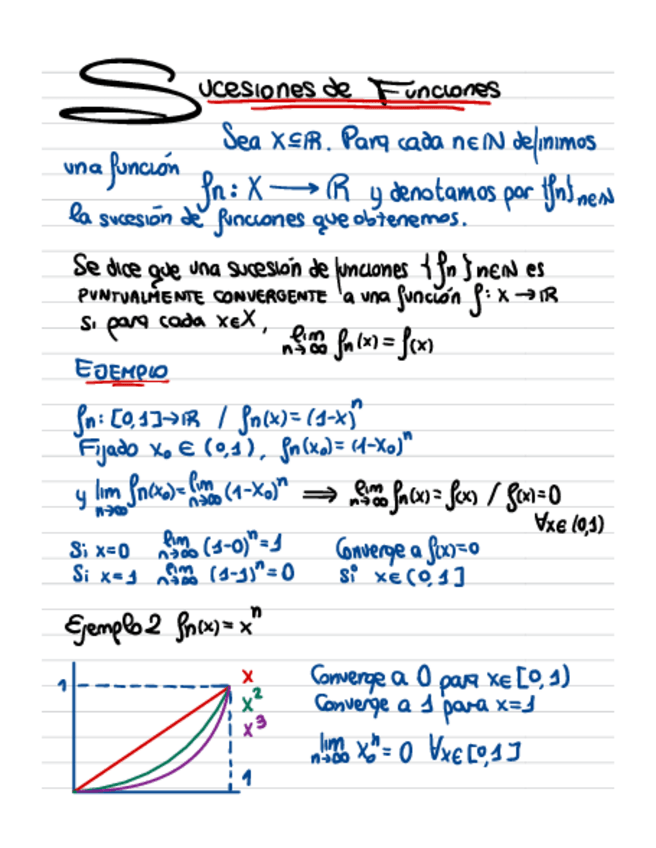 Sucesiones de Funciones
Sea X⊆ℝ. Para cada n∈ℕ definimos
una función
fn: X ⟶ ℝ y denotamos por {fn}n∈ℕ
la sucesión de funciones que obtenemos.
Se dice que una sucesión de funciones {fn}n∈ℕ es
PUNTUALMENTE CONVERGENTE a una función f: X → ℝ
Si para cada x∈X, lim n→∞ fn(x) = f(x)
EJEMPLO
fn: [0,1]→ℝ / fn(x) = (1-x)^n
Fijado x₀ ∈ (0,1), fn(x₀) = (1-x₀)^n
y lim n→∞ fn(x₀) = lim n→∞ (1-x₀)^n ⟹ lim n→∞ fn(x) = f(x) / f(x)=0
∀x∈(0,1)
Si x=0 lim n→∞ (1-0)^n = 1 Converge a f(x)=0
Si x=1 lim n→∞ (1-1)^n = 0 si x∈(0,1]
Ejemplo 2 fn(x) = x^n
1
x
x²
x³
1
Converge a 0 para x∈[0,1)
Converge a 1 para x=1
lim n→∞ x₀^n = 0 ∀x∈[0,1]